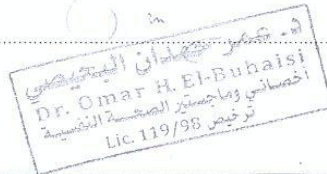 in
د. عمر حمدان البحيصي
Dr. Omar H. El-Buhaisi
أخصائي وماجستير الصحة النفسية
ترخيص Lic. 119/98